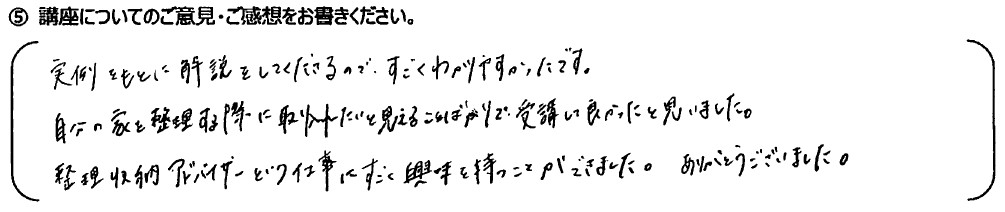 ⑤ 講座についてのご意見・ご感想をお書きください。
実例をもとに解説をしてくださるので、すごくわかりやすかったです。
自分の家を整理する際に取り入れたいと思えることばかりで、受講して良かったと思いました。
整理収納アドバイザーという仕事にすごく興味を持つことができました。 ありがとうございました。